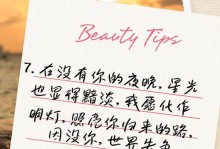 Beauty Tips
7. 在没有你的夜晚，星光
也显得黯淡，我愿化作
明灯，照亮你归来的路，
因没你，世界失色